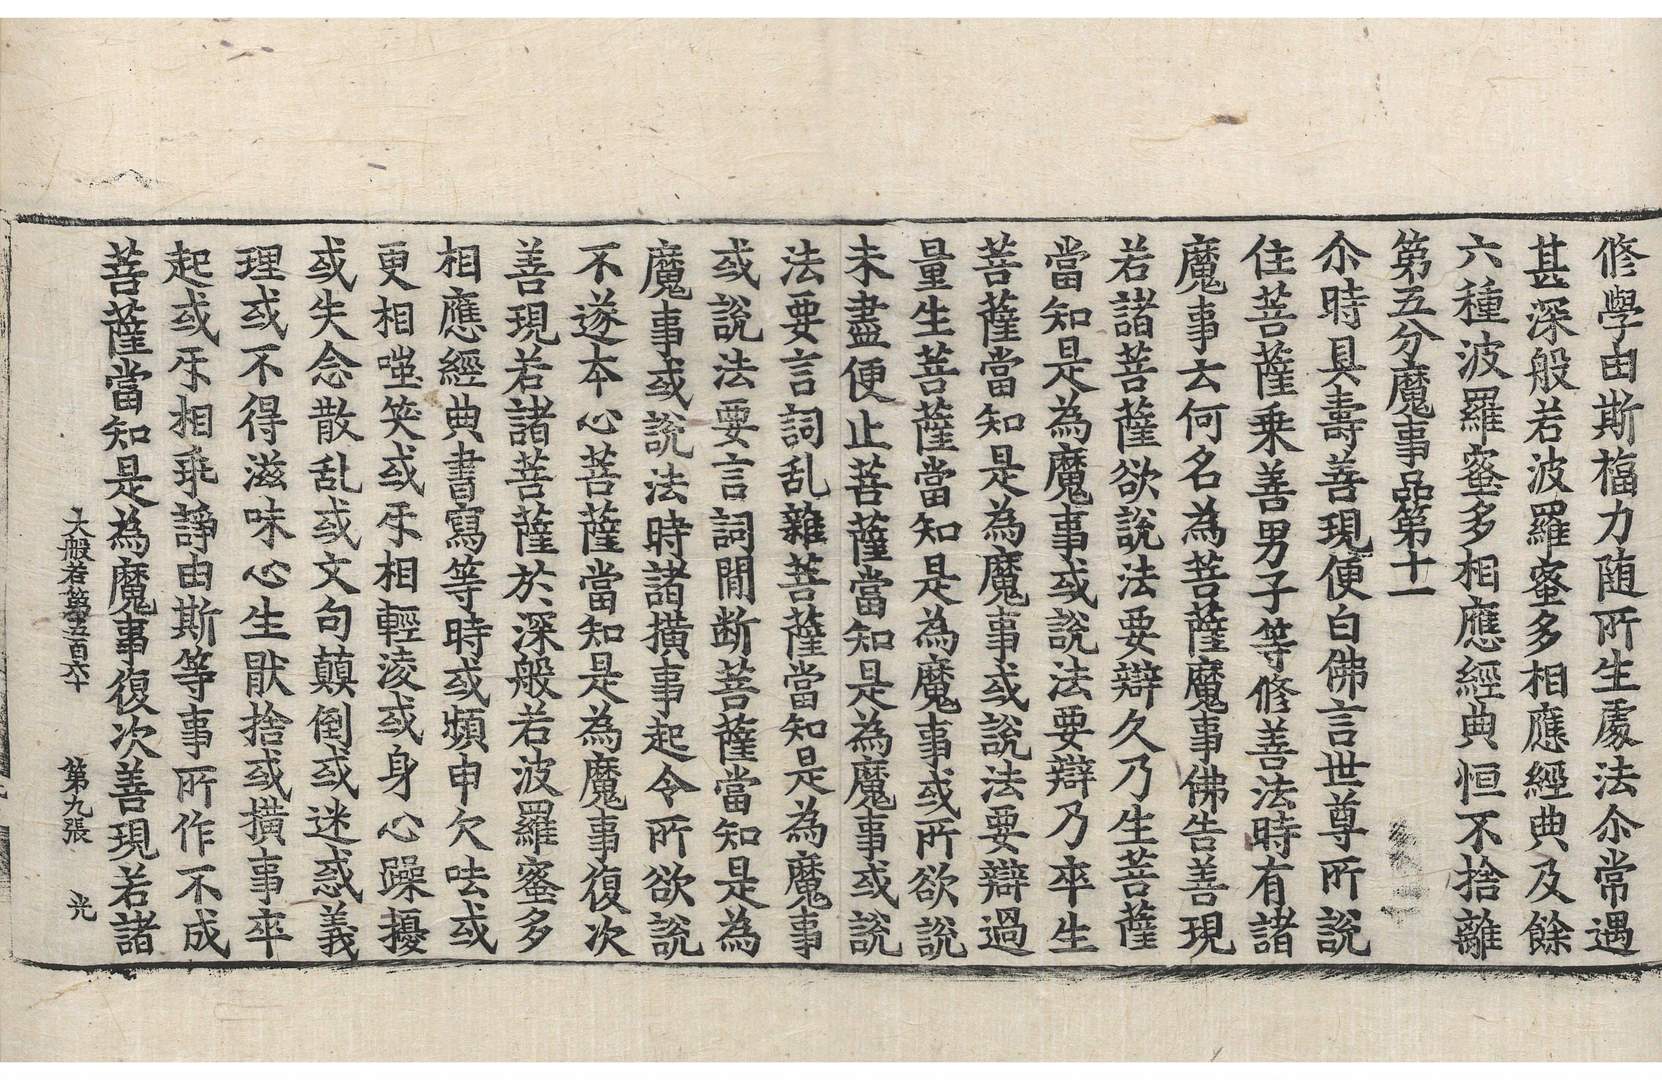 修學由斯福力随所生處法尒常遇
甚深般若波羅蜜多相應經典及餘
六種波羅蜜多相應經典恒不捨離
第五分魔事品第十一
尒時具壽善現便白佛言世尊所說
住菩薩乗善男子等修善法時有諸
魔事云何名為菩薩魔事佛告善現
若諸菩薩欲說法要辯久乃生菩薩
當知是為魔事或說法要辯乃卒生
菩薩當知是為魔事或說法要辯過
量生菩薩當知是為魔事或所欲說
未盡便止菩薩當知是為魔事或說
法要言詞乱雜菩薩當知是為魔事
或說法要言詞間断菩薩當知是為
魔事或說法時諸撗事起令所欲說
不遂本心菩薩當知是為魔事復次
善現若諸菩薩於深般若波羅蜜多
相應經典書寫等時或頻申欠呿或
更相嗤笑或㸦相輕淩或身心躁擾
或失念散乱或文句顛倒或迷惑義
理或不得滋味心生厭捨或撗事卒
起或㸦相乖諍由斯等事所作不成
菩薩當知是為魔事復次善現若諸
大般若第五百六十 第九張 光